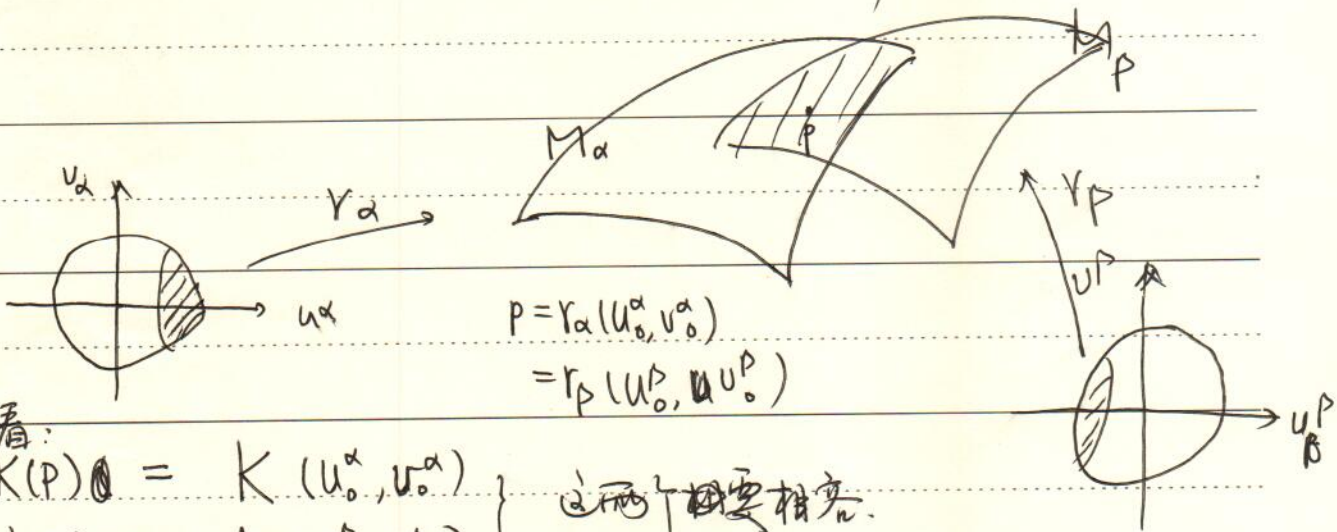 M_β
M_α
p
v_α
r_α
r_β
v^β
u^α
p = r_α(u_0^α, v_0^α)
= r_β(u_0^β, v_0^β)
u^β
看:
K(p) = K(u_0^α, v_0^α)
这两个要相容.